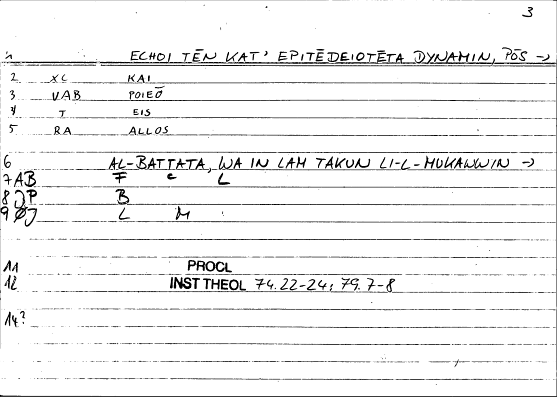 3
1 ECHOI TĒN KAT' EPITĒDEIOTĒTA DYNAMIN, PŌS →
2 XC KAI
3 VAB POIEŌ
4 T EIS
5 RA ALLOS
6 AL-BATTATA, WA IN LAM TAKUN LI-L-MUKAWWIN →
7 AB F C L
8 P B
9 ØJ L M
11 PROCL
12 INST THEOL 74.22-24; 79.7-8
14?